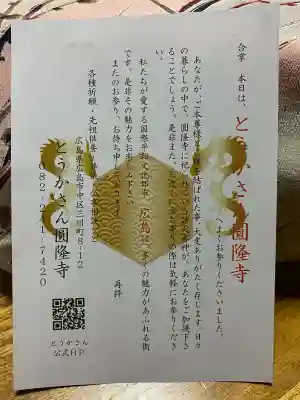 合掌 本日は、
とうかさん圓隆寺
へようお参りくださいました。
あなたが、ご本尊様とご縁を結ばれた事、大変ありがたく存じます。日々
の暮らしの中で、圓隆寺に祀
神が、あなたをご加護下さ
ることでしょう。是非また、
の際は気軽にお参りくださ
い。
私たちが愛する国際平和文化都市「広島」は、多くの魅力があふれる街
です。是非その魅力をお
下さい。
またのお参り、お待ち申し
ます。
再拝
各種祈願・先祖供養
広島県広島市中区三川町8-12
とうかさん圓隆寺
082-241-7420
とうかさん
公式HP